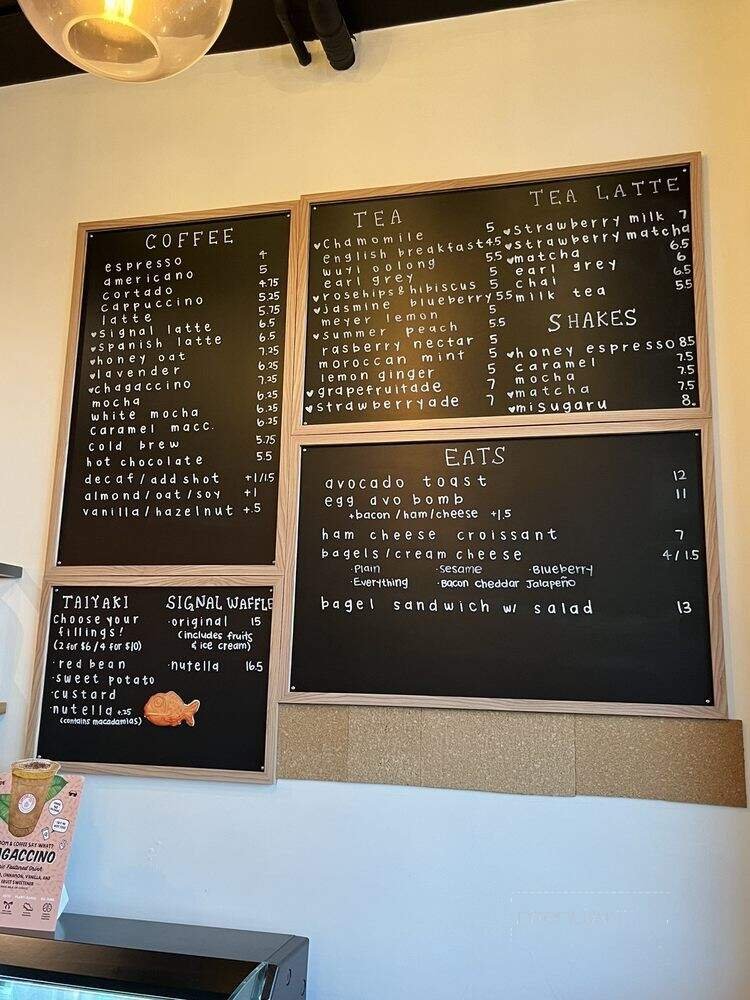 COFFEE
espresso 4
americano 5
cortado 4.75
cappuccino 5.25
latte 5.75
♥signal latte 6.5
♥spanish latte 6.5
♥honey oat 7.25
♥lavender 6.25
♥chagaccino 7.25
mocha 6.25
white mocha 6.25
caramel macc. 6.25
cold brew 5.75
hot chocolate 5.5
decaf/add shot +1/1.5
almond/oat/soy +1
vanilla/hazelnut +.5
TEA
♥Chamomile 5
english breakfast 4.5
wuyi oolong 5.5
earl grey 5
♥rosehips&hibiscus 5
♥jasmine blueberry 5.5
meyer lemon 5
♥summer peach 5.5
rasberry nectar 5
moroccan mint 5
lemon ginger 5
♥grapefruitade 7
♥strawberryade 7
TEA LATTE
♥strawberry milk 7
♥strawberry matcha
♥matcha 6.5
earl grey 6
chai 6.5
milk tea 5.5
SHAKES
♥honey espresso 8.5
caramel 7.5
mocha 7.5
♥matcha 7.5
♥misugaru 8.
EATS
avocado toast 12
egg avo bomb 11
+bacon/ham/cheese +1.5
ham cheese croissant 7
bagels/cream cheese 4/1.5
·Plain ·Sesame ·Blueberry
·Everything ·Bacon cheddar Jalapeño
bagel sandwich w/ salad 13
TAIYAKI
Choose your
fillings!
(2 for $6/4 for $10)
·red bean
·sweet potato
·custard
·nutella +.25
(contains macadamias)
SIGNAL WAFFLE
·original 15
(includes fruits
& ice cream)
·nutella 16.5
OM & COFFEE SAY WHAT?
GACCINO
Featured Drink
CINNAMON, VANILLA, AND
FRUIT SWEETENER